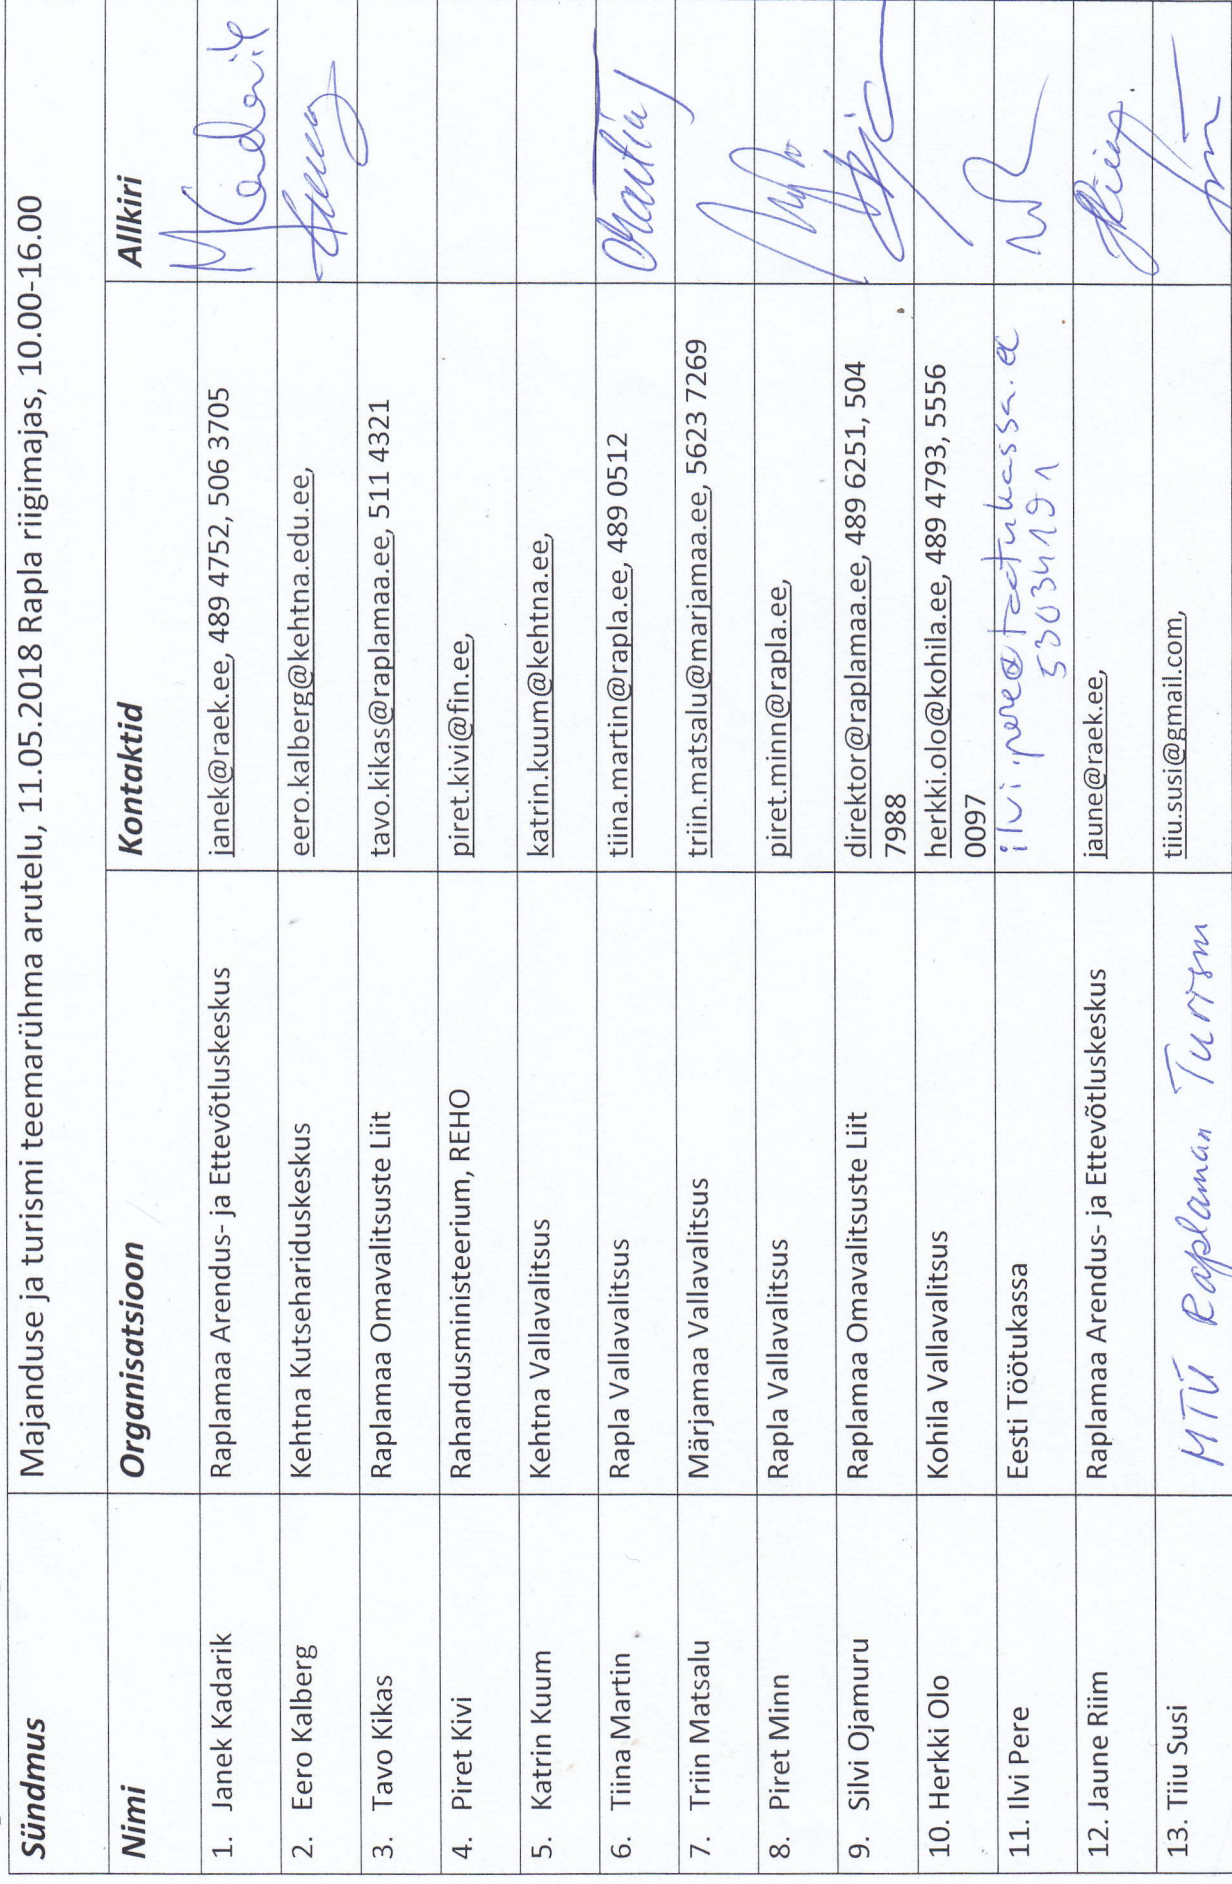 Sündmus Majanduse ja turismi teemarühma arutelu, 11.05.2018 Rapla riigimajas, 10.00-16.00
Nimi Organisatsioon Kontaktid Allkiri
1. Janek Kadarik Raplamaa Arendus- ja Ettevõtluskeskus janek@raek.ee, 489 4752, 506 3705 MKadarik
2. Eero Kalberg Kehtna Kutsehariduskeskus eero.kalberg@kehtna.edu.ee,
3. Tavo Kikas Raplamaa Omavalitsuste Liit tavo.kikas@raplamaa.ee, 511 4321
4. Piret Kivi Rahandusministeerium, REHO piret.kivi@fin.ee,
5. Katrin Kuum Kehtna Vallavalitsus katrin.kuum@kehtna.ee,
6. Tiina Martin Rapla Vallavalitsus tiina.martin@rapla.ee, 489 0512 Martin
7. Triin Matsalu Märjamaa Vallavalitsus triin.matsalu@marjamaa.ee, 5623 7269
8. Piret Minn Rapla Vallavalitsus piret.minn@rapla.ee,
9. Silvi Ojamuru Raplamaa Omavalitsuste Liit direktor@raplamaa.ee, 489 6251, 504
7988
10. Herkki Olo Kohila Vallavalitsus herkki.olo@kohila.ee, 489 4793, 5556
0097
11. Ilvi Pere Eesti Töötukassa ilvi.pere@tootukassa.ee
53034191
12. Jaune Riim Raplamaa Arendus- ja Ettevõtluskeskus jaune@raek.ee,
13. Tiiu Susi MTÜ Raplamaa Turism tiiu.susi@gmail.com,